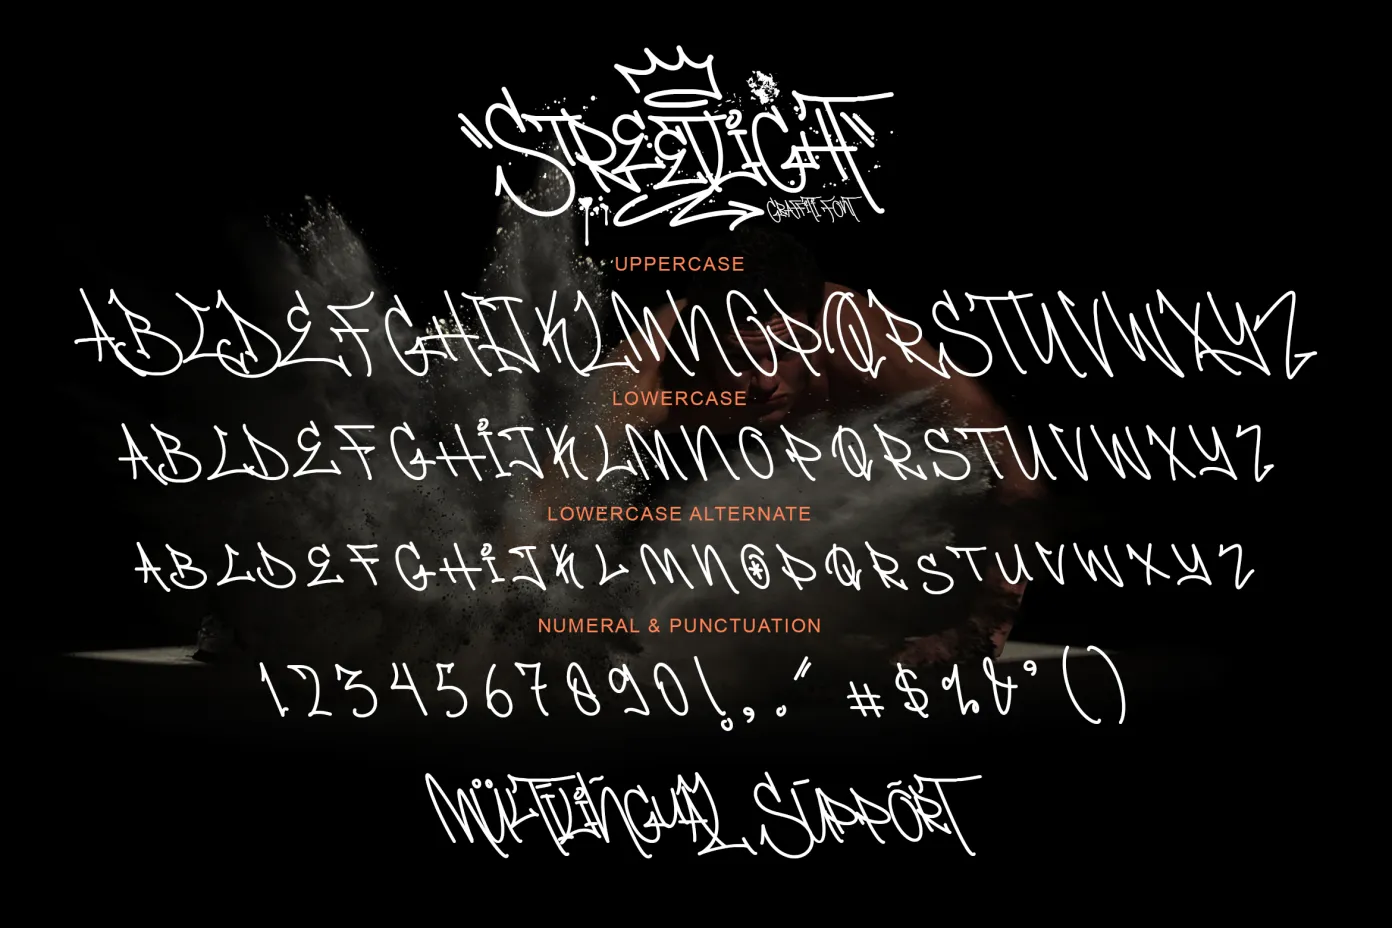 "STREETLIGHT"
GRAFFITI FONT
UPPERCASE
ABCDEFGHIJKLMNOPQRSTUVWXYZ
LOWERCASE
ABCDEFGHiJKLMNOPQRSTUVWXYZ
LOWERCASE ALTERNATE
ABCDEFGHiJKLMNOPQRSTUVWXYZ
NUMERAL & PUNCTUATION
1234567890!,.:" #$%&'()
MÜLTİLİÑGUAL SŪPPÕRT